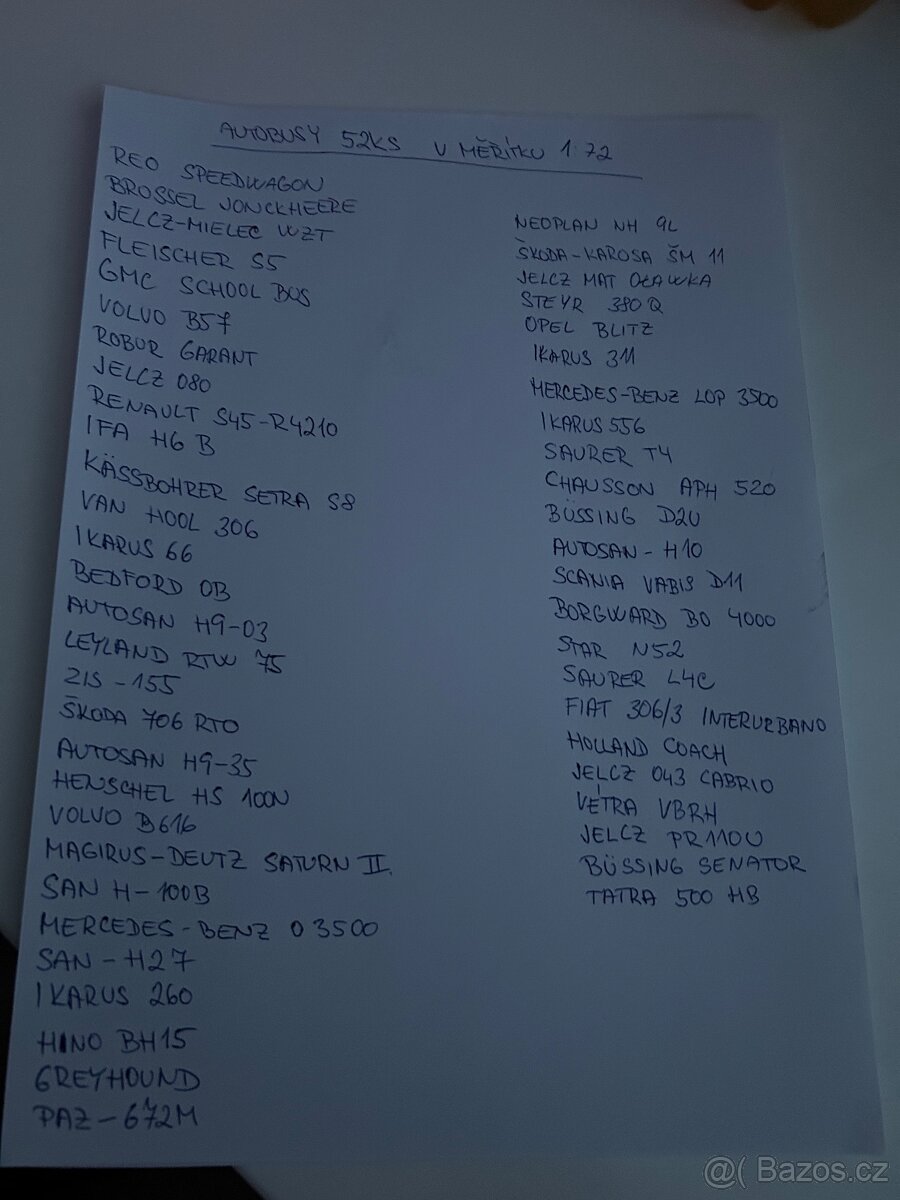 AUTOBUSY 52KS V MĚŘÍTKU 1:72
REO SPEEDWAGON
BROSSEL JONCKHEERE
JELCZ-MIELEC WZT
FLEISCHER S5
GMC SCHOOL BUS
VOLVO B57
ROBUR GARANT
JELCZ 080
RENAULT S45-R4210
IFA H6 B
KÄSSBOHRER SETRA S8
VAN HOOL 306
IKARUS 66
BEDFORD OB
AUTOSAN H9-03
LEYLAND RTW 75
ZIS-155
ŠKODA 706 RTO
AUTOSAN H9-35
HENSCHEL HS 100N
VOLVO B616
MAGIRUS-DEUTZ SATURN II.
SAN H-100B
MERCEDES-BENZ O 3500
SAN-H27
IKARUS 260
HINO BH15
GREYHOUND
PAZ-672M
NEOPLAN NH 9L
ŠKODA-KAROSA ŠM 11
JELCZ MAT OŁAWKA
STEYR 380Q
OPEL BLITZ
IKARUS 311
MERCEDES-BENZ LOP 3500
IKARUS 556
SAURER T4
CHAUSSON APH 520
BÜSSING D2U
AUTOSAN-H10
SCANIA VABIS D11
BORGWARD BO 4000
STAR N52
SAURER L4C
FIAT 306/3 INTERURBANO
HOLLAND COACH
JELCZ 043 CABRIO
VÉTRA VBRH
JELCZ PR110U
BÜSSING SENATOR
TATRA 500 HB
@( Bazos.cz